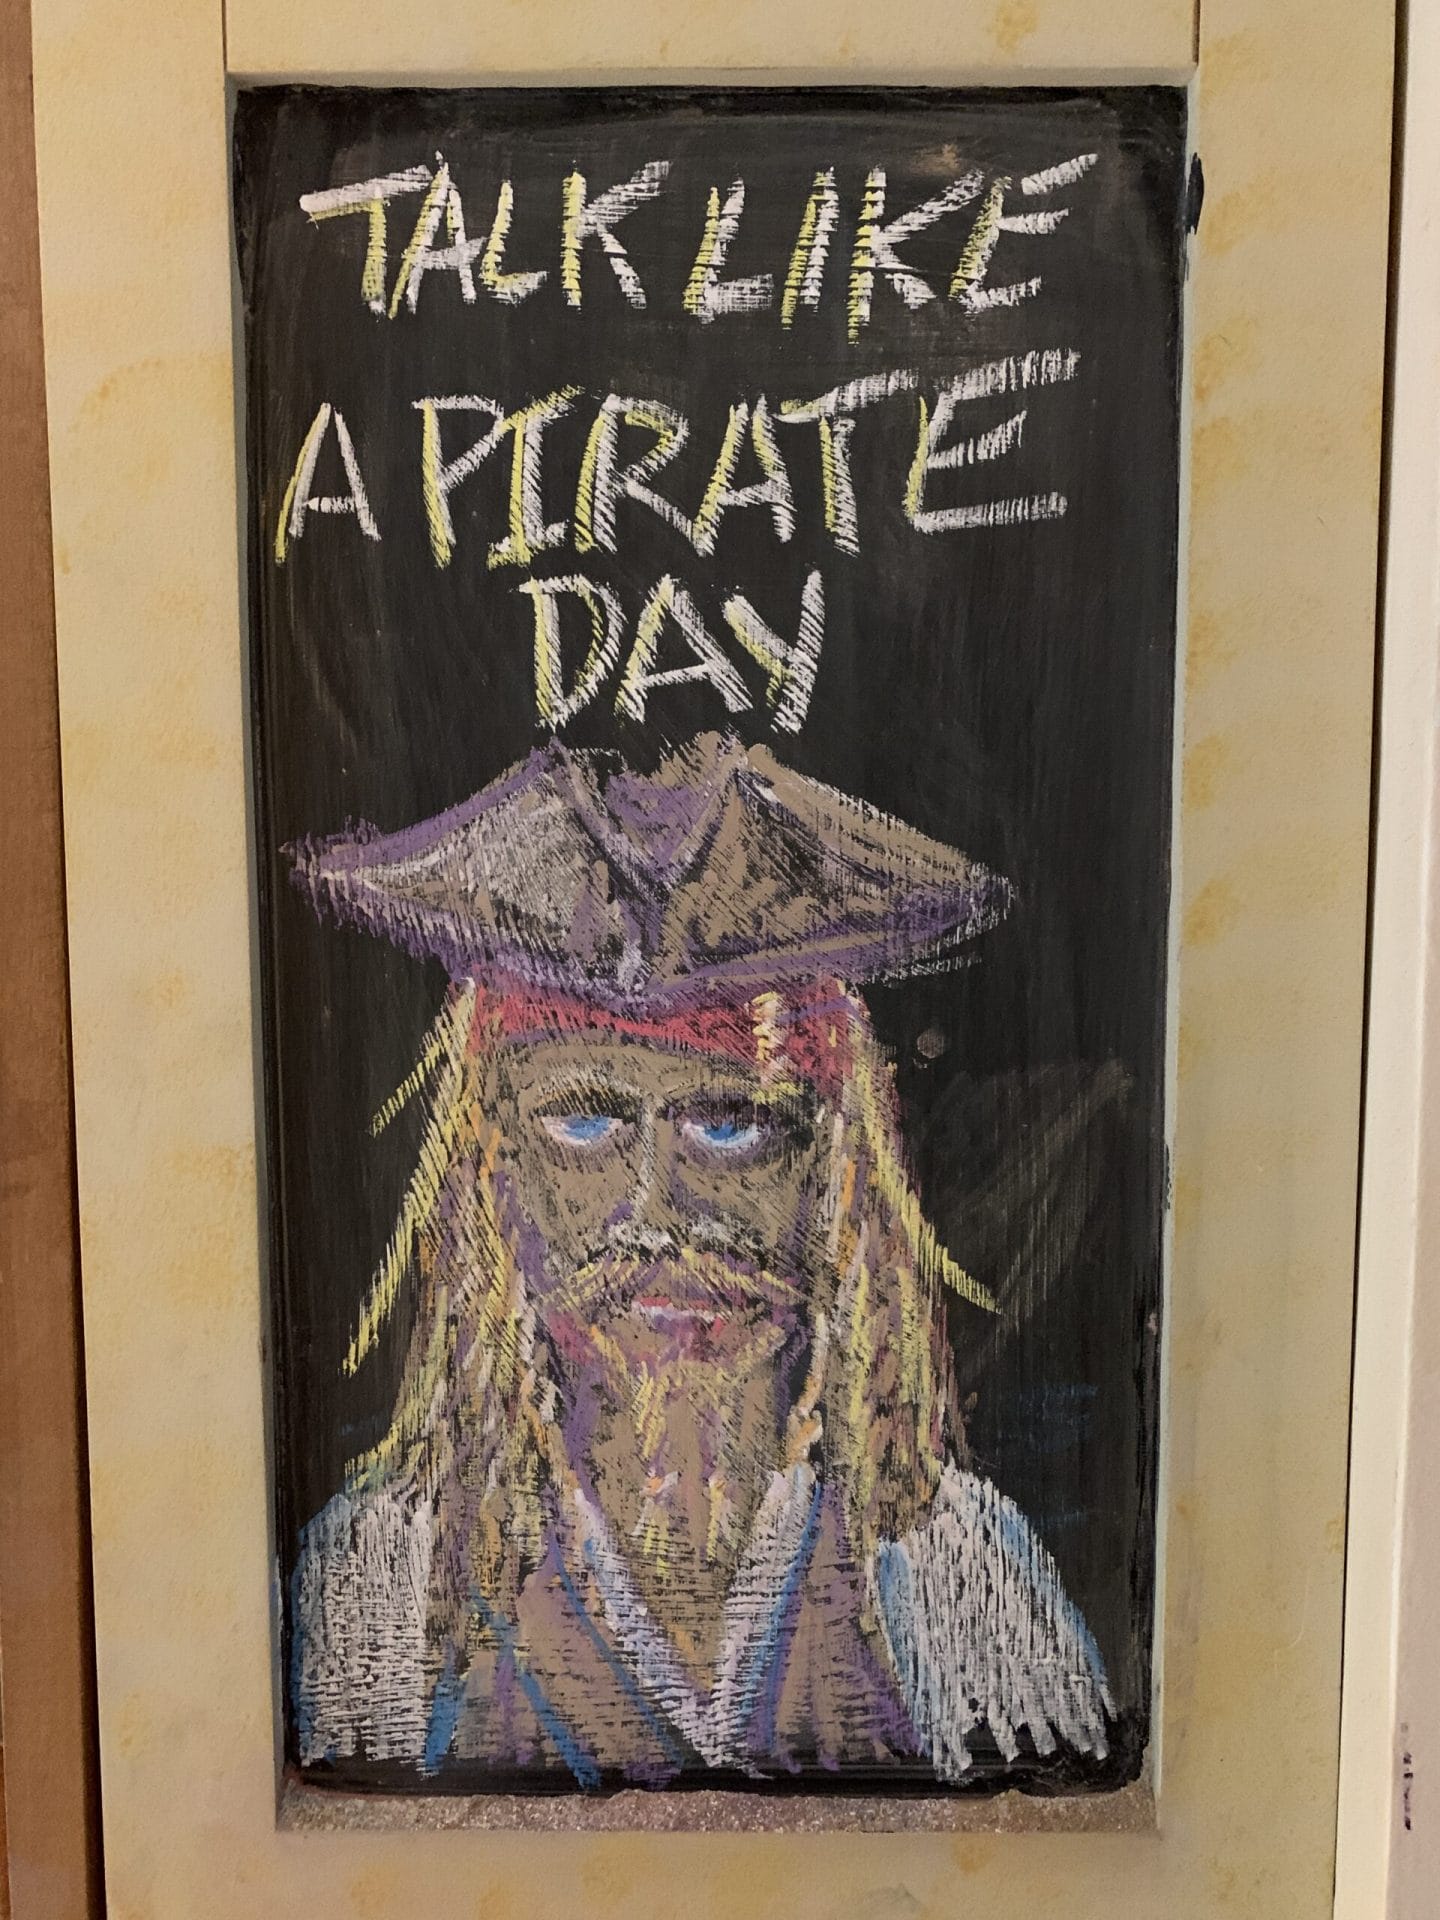 TALK LIKE
A PIRATE
DAY